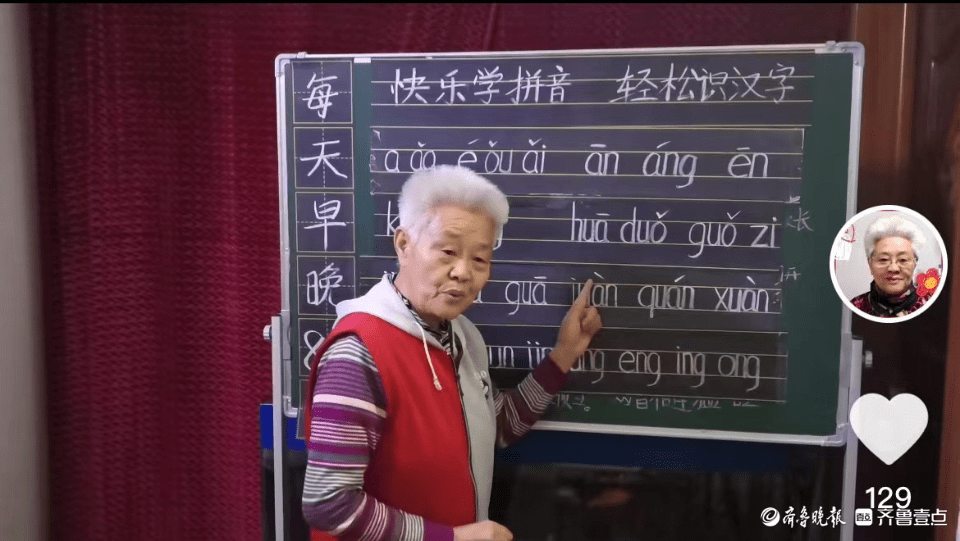 每天早晚8
快乐学拼音 轻松识汉字
ɑ ǎo é ǒu ǎi ān áng ēn
huā duǒ guǒ zi
guā juàn quán xuàn
ang eng ing ong
129
齐鲁晚报 齐鲁壹点